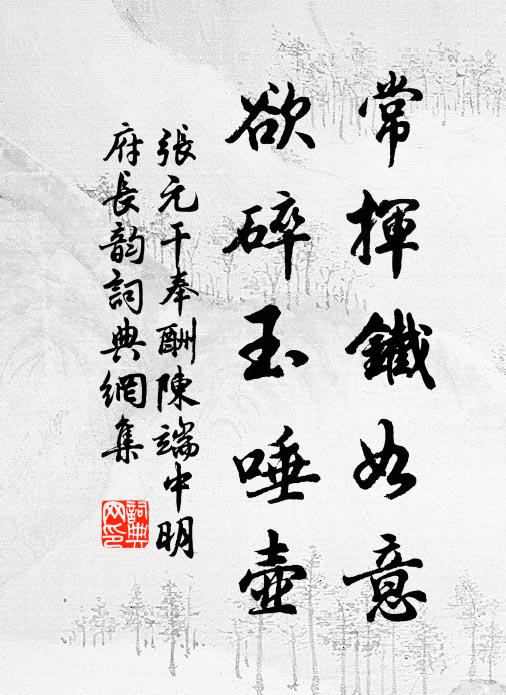 常揮鐵如意
欲碎玉唾壺
張元干奉酬陳端中明
府長韵詞典網集
詞典
网印